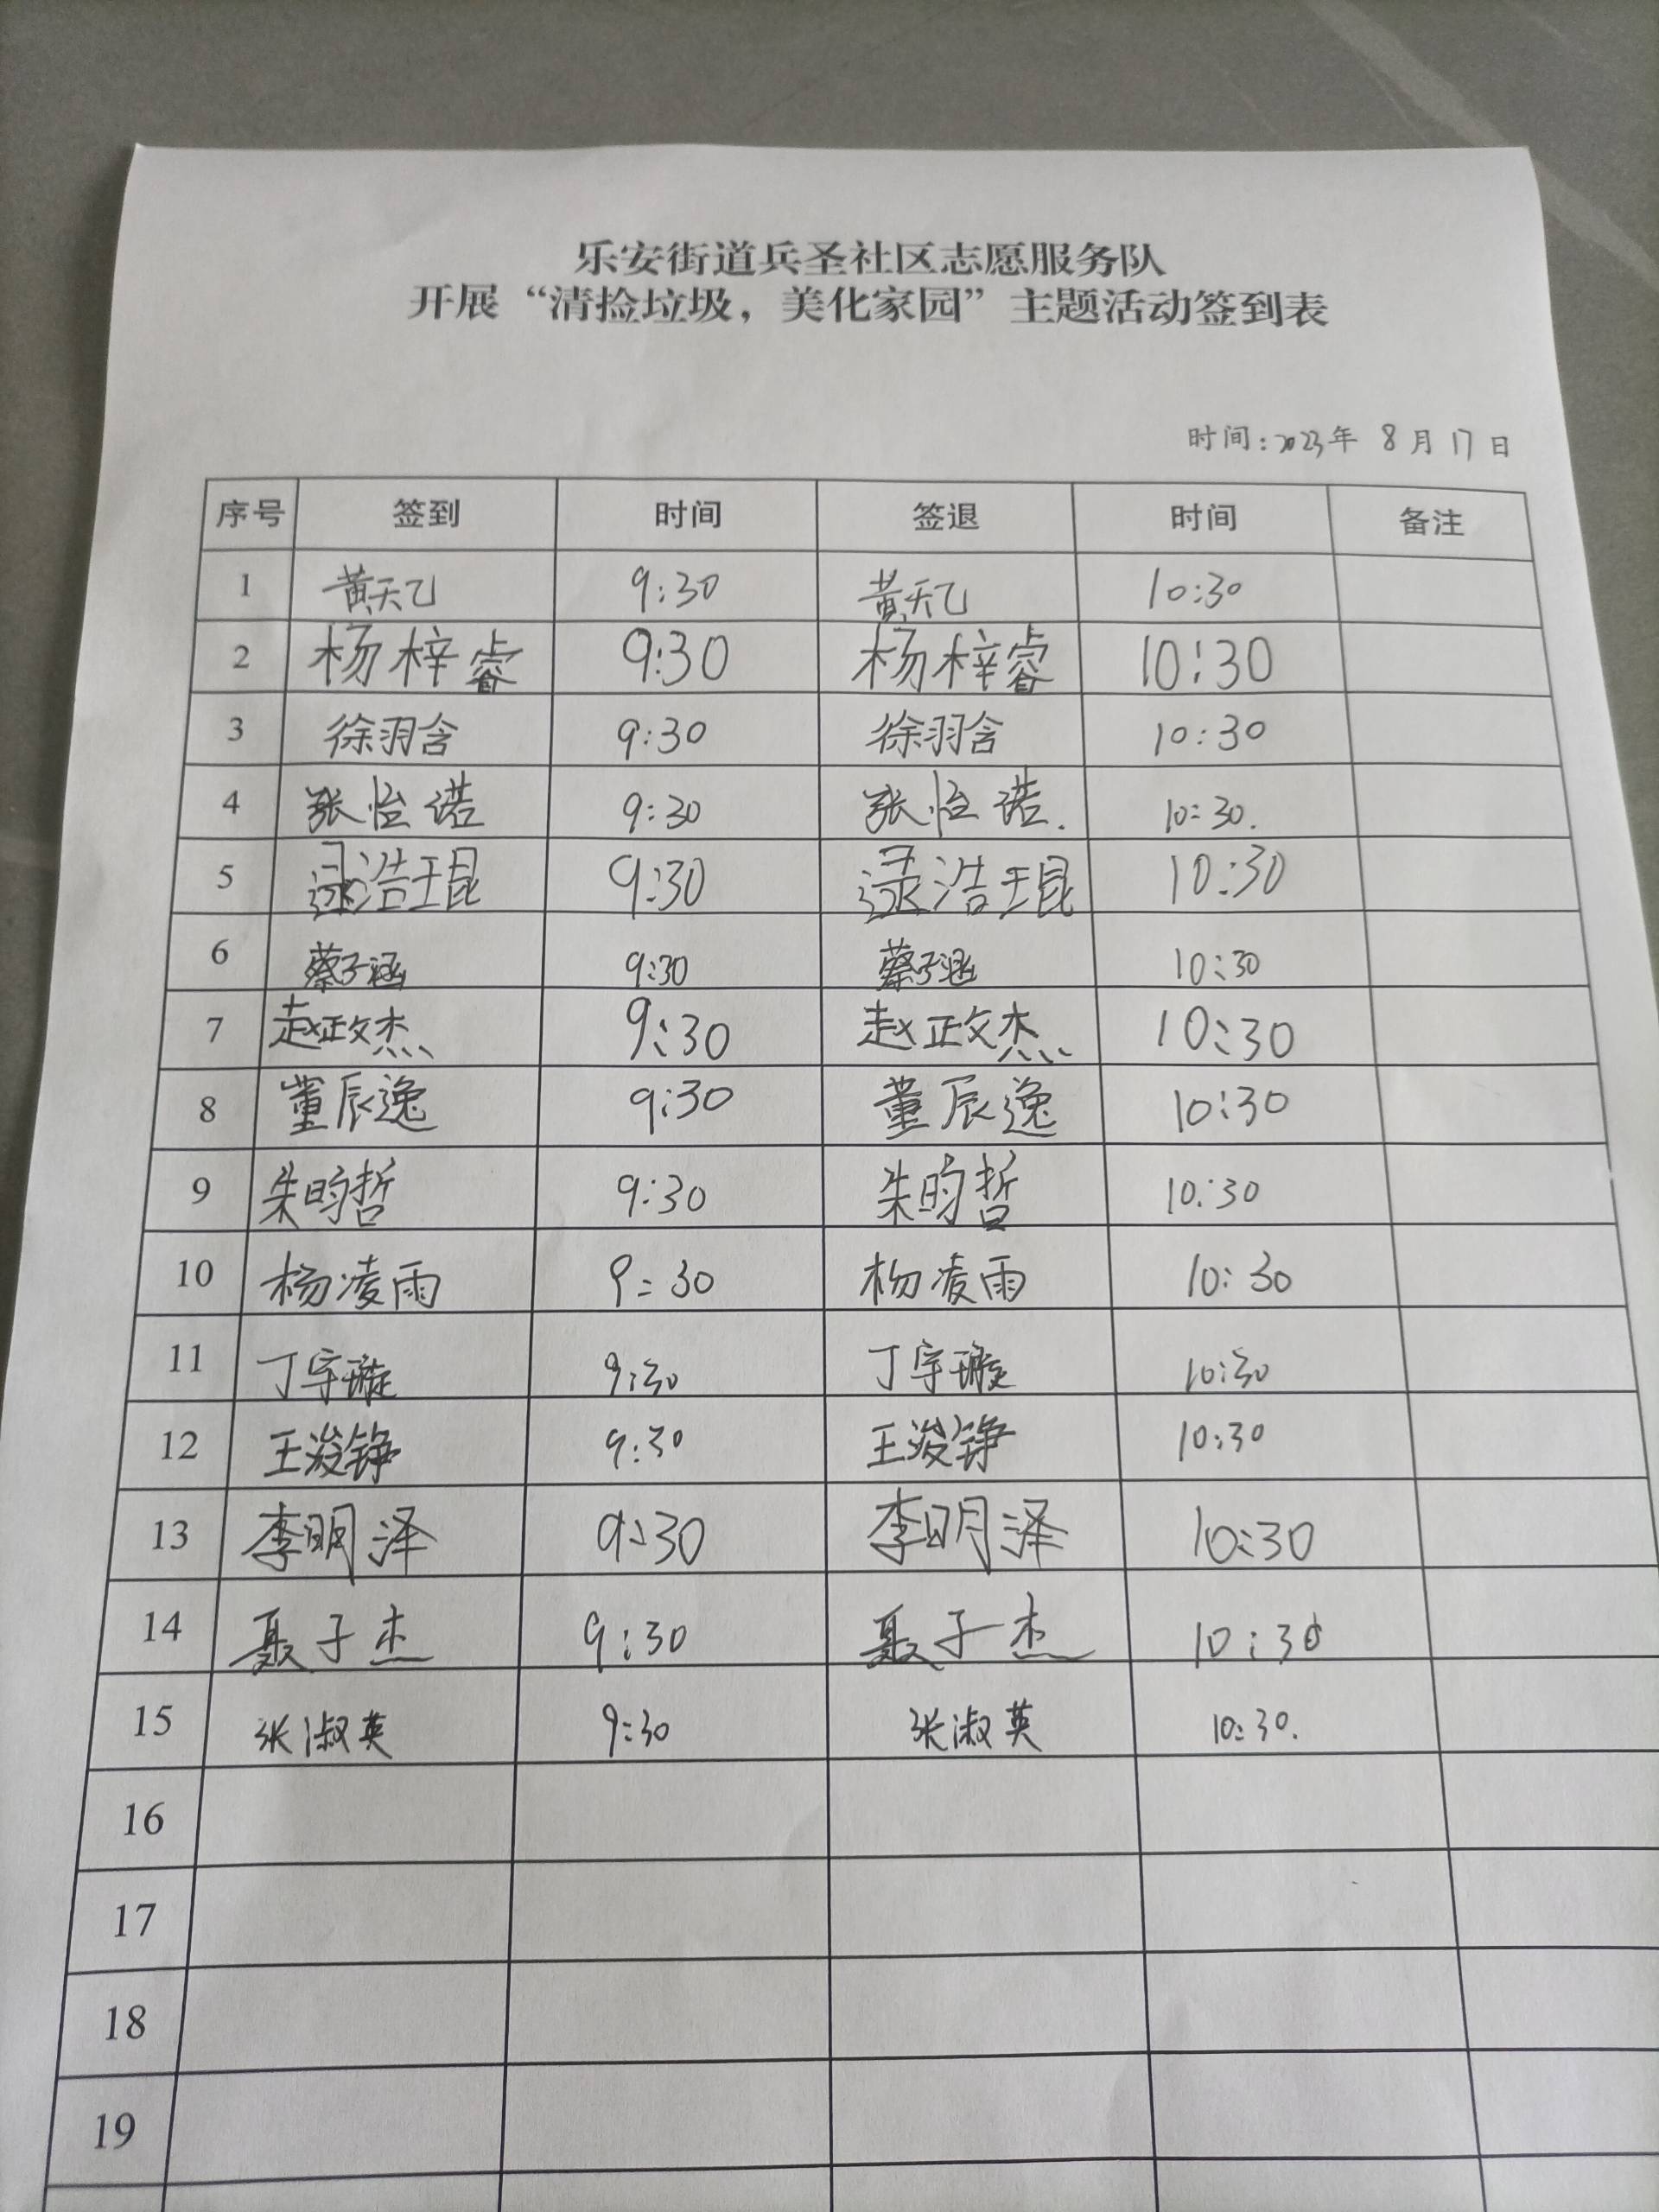 乐安街道兵圣社区志愿服务队
开展“清捡垃圾，美化家园”主题活动签到表
时间：2023年 8月17日
序号 签到 时间 签退 时间 备注
1 黄天乙 9:30 黄天乙 10:30
2 杨梓睿 9:30 杨梓睿 10:30
3 徐羽含 9:30 徐羽含 10:30
4 张怡诺 9:30 张怡诺. 10:30.
5 逯浩琨 9:30 逯浩琨 10:30
6 蔡子涵 9:30 蔡子涵 10:30
7 赵政杰 9:30 赵政杰 10:30
8 董辰逸 9:30 董辰逸 10:30
9 朱昀哲 9:30 朱昀哲 10:30
10 杨凌雨 9:30 杨凌雨 10:30
11 丁宇璇 9:30 丁宇璇 10:30
12 王浚铮 9:30 王浚铮 10:30
13 李明泽 9:30 李明泽 10:30
14 聂子杰 9:30 聂子杰 10:30
15 张淑英 9:30 张淑英 10:30.
16
17
18
19